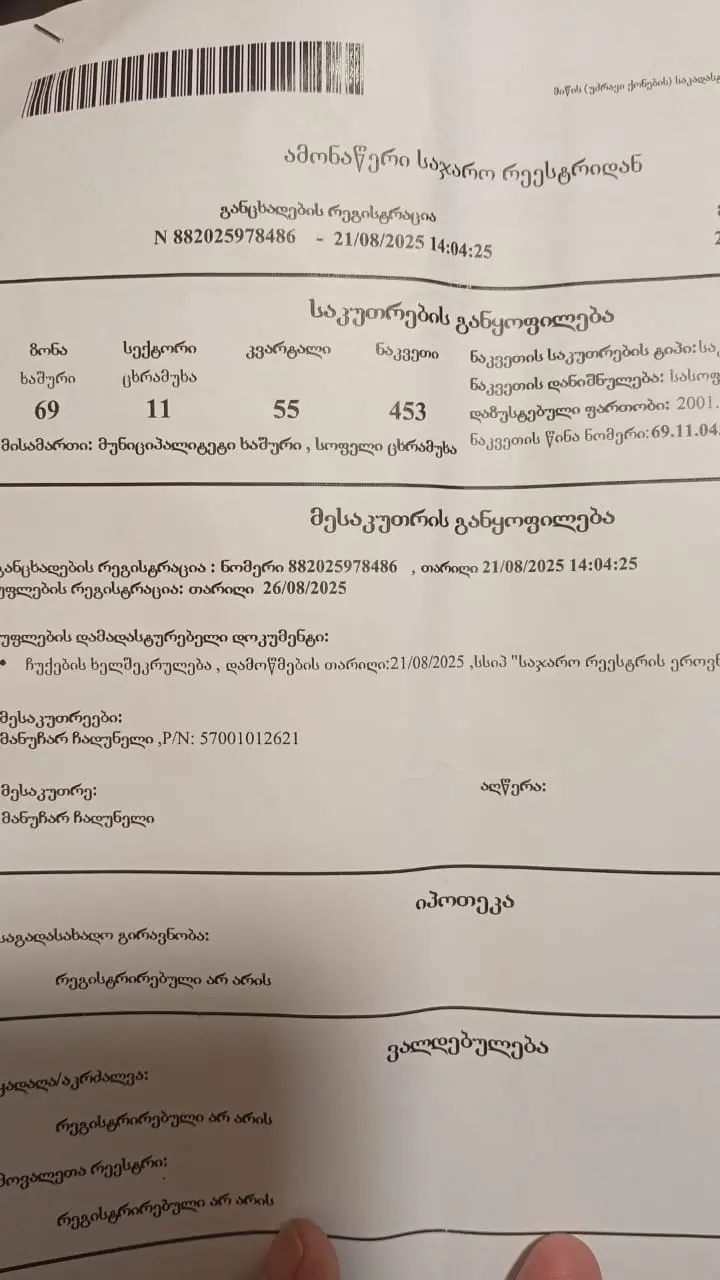 მიწის (უძრავი ქონების) საკადასტ
ამონაწერი საჯარო რეესტრიდან
განცხადების რეგისტრაცია
N 882025978486 - 21/08/2025 14:04:25
საკუთრების განყოფილება
ზონა სექტორი კვარტალი ნაკვეთი
ხაშური ცხრამუხა
69 11 55 453
ნაკვეთის საკუთრების ტიპი: სა
ნაკვეთის დანიშნულება: სასოფ
დაზუსტებული ფართობი: 2001.
ნაკვეთის წინა ნომერი: 69.11.04.
მისამართი: მუნიციპალიტეტი ხაშური , სოფელი ცხრამუხა
მესაკუთრის განყოფილება
განცხადების რეგისტრაცია : ნომერი 882025978486 , თარიღი 21/08/2025 14:04:25
უფლების რეგისტრაცია: თარიღი 26/08/2025
უფლების დამადასტურებელი დოკუმენტი:
• ჩუქების ხელშეკრულება , დამოწმების თარიღი:21/08/2025 ,სსიპ "საჯარო რეესტრის ეროვნ
მესაკუთრეები:
მანუჩარ ჩადუნელი ,P/N: 57001012621
მესაკუთრე: აღწერა:
მანუჩარ ჩადუნელი
იპოთეკა
საგადასახადო გირავნობა:
რეგისტრირებული არ არის
ვალდებულება
ყადაღა/აკრძალვა:
რეგისტრირებული არ არის
მოვალეთა რეესტრი:
რეგისტრირებული არ არის